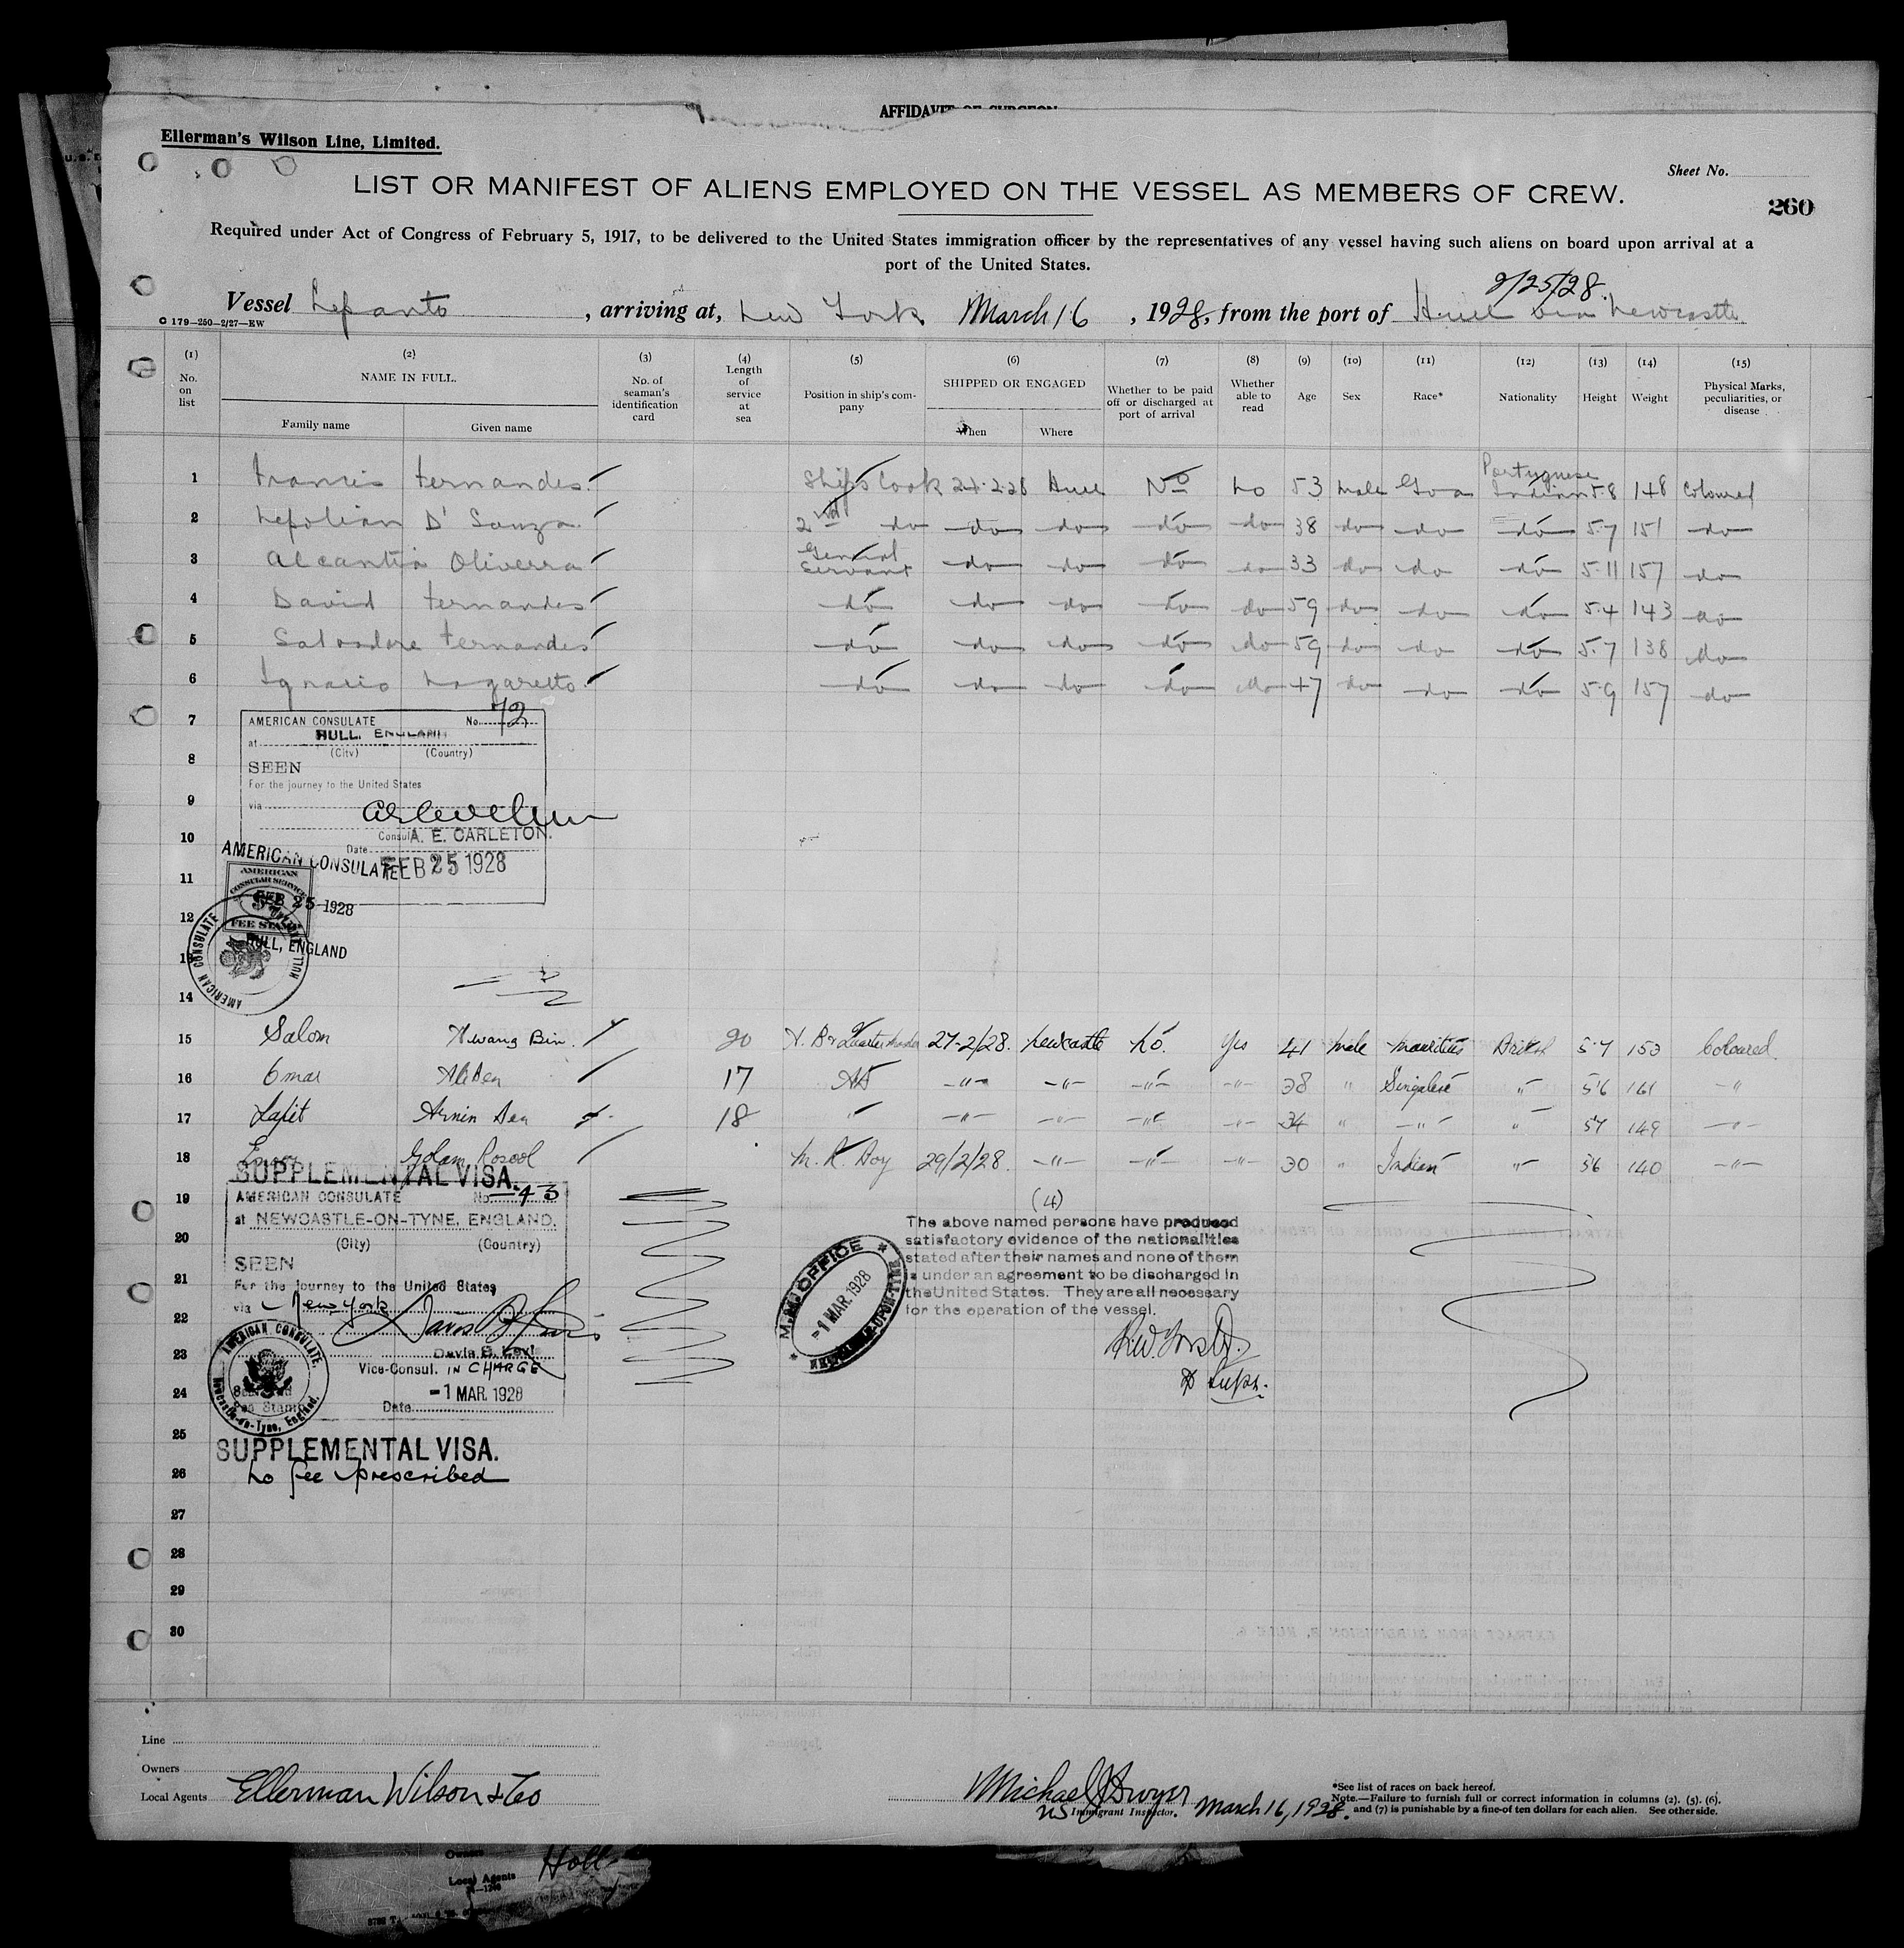 AFFIDAVIT OF SURGEON
Ellerman's Wilson Line, Limited.
Sheet No.
LIST OR MANIFEST OF ALIENS EMPLOYED ON THE VESSEL AS MEMBERS OF CREW.
260
Required under Act of Congress of February 5, 1917, to be delivered to the United States immigration officer by the representatives of any vessel having such aliens on board upon arrival at a
port of the United States.
2/25/28.
Vessel Lepanto, arriving at, New York March 16, 1928, from the port of Hull via Newcastle
C 179—250—2/27—EW
(1) (2) (3) (4) (5) (6) (7) (8) (9) (10) (11) (12) (13) (14) (15)
No. on list NAME IN FULL. Family name Given name No. of seaman's identification card Length of service at sea Position in ship's company SHIPPED OR ENGAGED When Where Whether to be paid off or discharged at port of arrival Whether able to read Age Sex Race* Nationality Height Weight Physical Marks, peculiarities, or disease
1 Francis Fernandes Ships Cook 24.2.28 Hull No No 53 male Goa Portuguese Indian 5.8 148 Coloured
2 Nepolian D'Souza 2nd do do do do do 38 do do do 5.7 151 do
3 Alcantra Oliverra General Servant do do do do 33 do do do 5.11 157 do
4 David Fernandes do do do do do 59 do do do 5.4 143 do
5 Salvadore Fernandes do do do do do 59 do do do 5.7 138 do
6 Ignacio Nazaretto do do do do do 47 do do do 5.9 157 do
7
AMERICAN CONSULATE No. 72
at HULL, ENGLAND
(City) (Country)
8
SEEN
For the journey to the United States
9
via
10
Consul A. E. CARLETON.
Date FEB 25 1928
AMERICAN CONSULATE
11
AMERICAN CONSULAR SERVICE
FEB 25 1928
12
FEE STAMP
HULL, ENGLAND
AMERICAN CONSULATE
13
14
15 Salom Awang Bin. 20 Quartermaster 27-2/28. Newcastle No. Yes 41 male Mauritius British 5.7 153 Coloured.
16 Omar Ali Ben 17 AB -"- -"- -"- -"- 38 " Singalese " 5'6 161 -"
17 Lafit Armin Ben 18 " -"- -"- -"- -"- 34 " -"- " 5'7 149 -"-
18 Golam Rosool M. R. Boy 29/2/28. -"- -"- -"- 30 " Indian " 5'6 140 -"-
SUPPLEMENTAL VISA.
19
AMERICAN CONSULATE No. 43
at NEWCASTLE-ON-TYNE, ENGLAND.
(City) (Country)
20
SEEN
21
For the journey to the United States
via New York
22
23
Davis B. Levi
Vice-Consul. IN CHARGE
24
-1 MAR 1928
Date
AMERICAN CONSULATE, Newcastle-on-Tyne, England.
25
SUPPLEMENTAL VISA.
26
No fee prescribed
(4)
The above named persons have produced
satisfactory evidence of the nationalities
stated after their names and none of them
is under an agreement to be discharged in
the United States. They are all necessary
for the operation of the vessel.
M.M. OFFICE
-1 MAR 1928
NEWCASTLE-UPON-TYNE
Supt.
27
28
29
30
Line
Owners
Local Agents Ellerman Wilson & Co
Michael J Dwyer
US Immigrant Inspector. March 16, 1928.
*See list of races on back hereof.
Note.—Failure to furnish full or correct information in columns (2). (5). (6).
and (7) is punishable by a fine of ten dollars for each alien. See other side.
Owners
Local Agents Holl